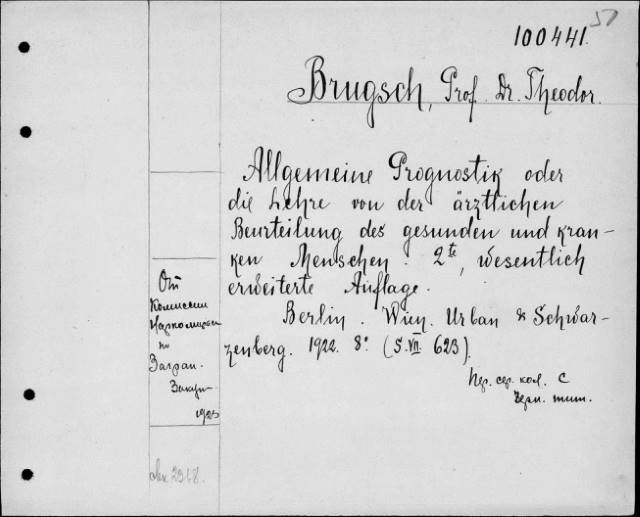 57
100441.
Brugsch, Prof. Dr. Theodor.
Allgemeine Prognostik oder
die Lehre von der ärztlichen
Beurteilung des gesunden und kran-
ken Menschen. 2te, wesentlich
erweiterte Auflage.
Berlin. Wien. Urban & Schwar-
zenberg. 1922. 8° (S. VII 623).
Пер. сер. кол. С
Черн. тит.
От
Комиссии
Наркомпроса
по
Загран.
Закуп
1923